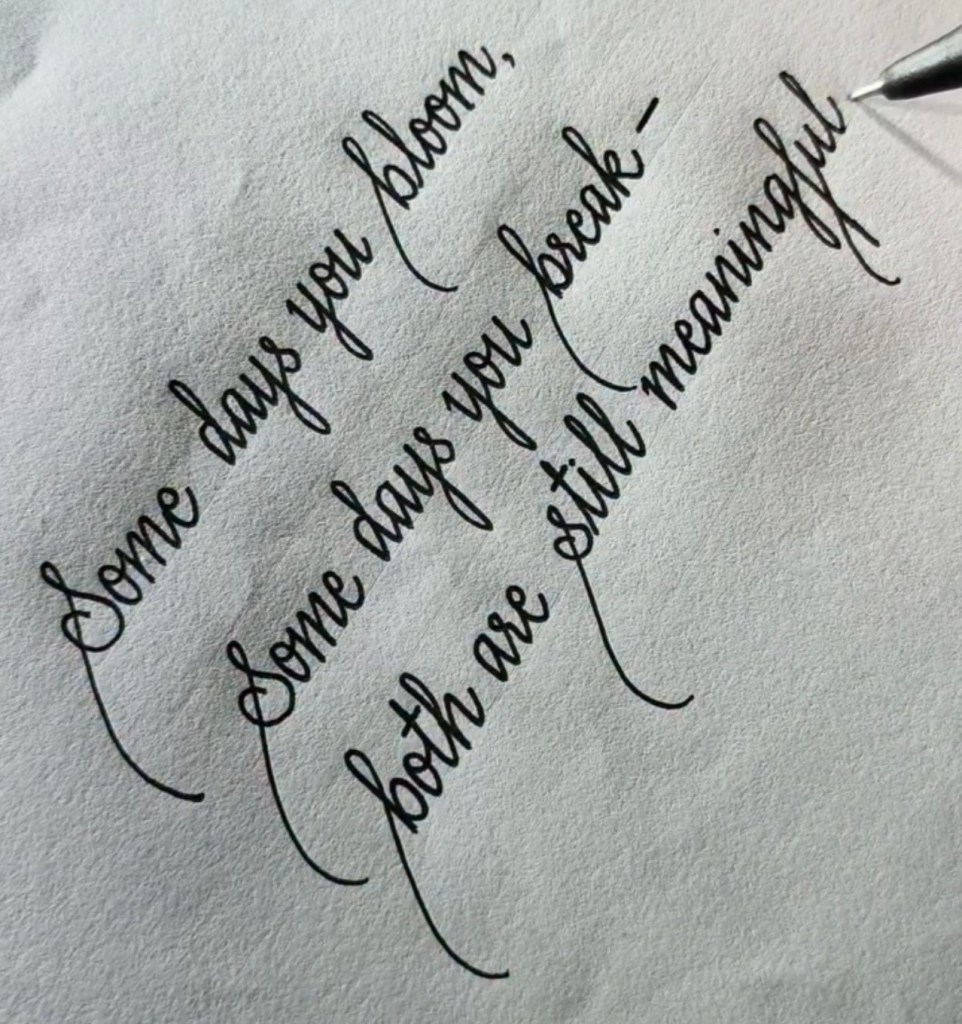 Some days you bloom,
Some days you break –
both are still meaningful